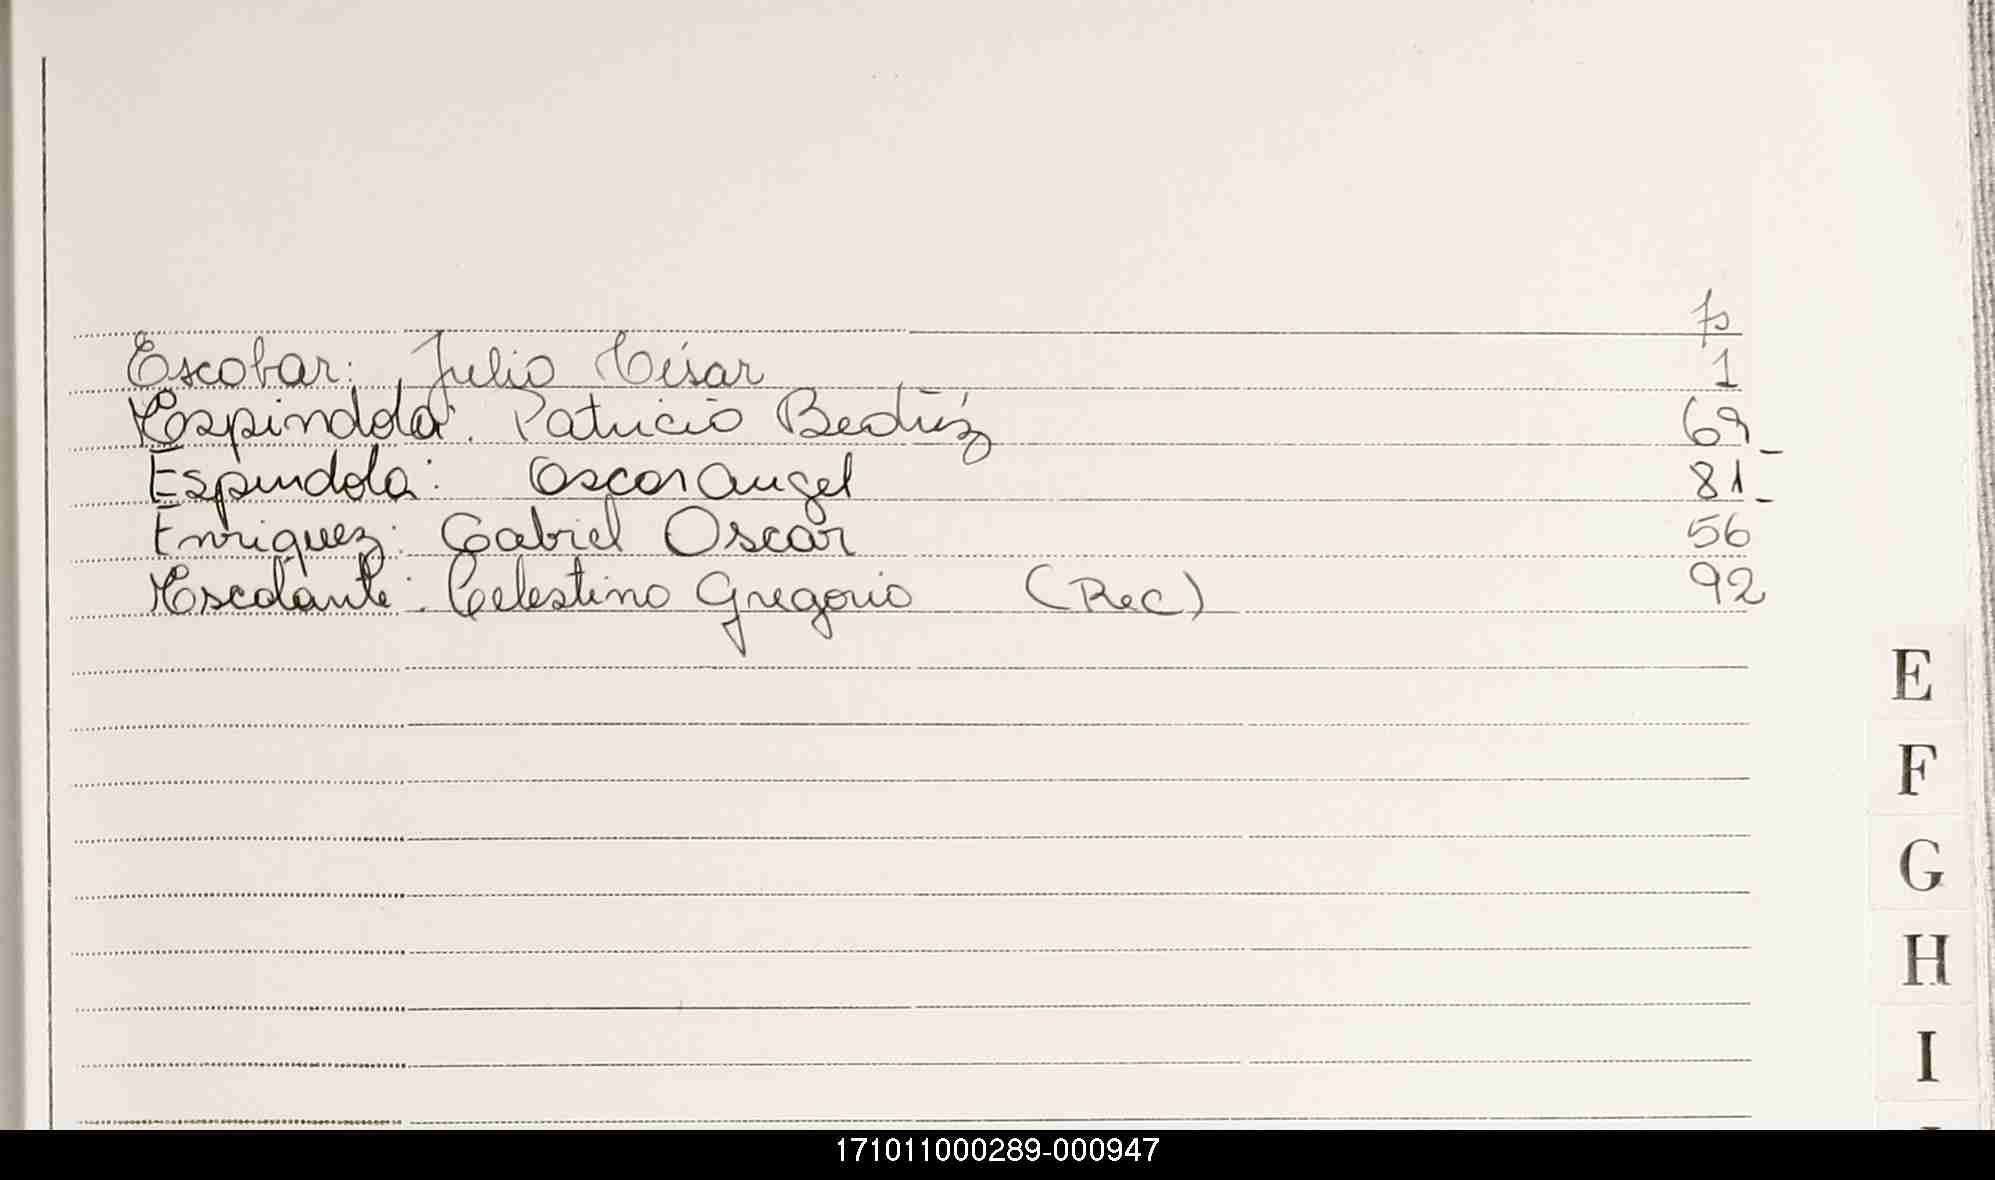 fs
Escobar: Julio César 1
Espindola: Patricia Beatriz 69
Espindola: Oscar Angel 81
Enriquez: Gabriel Oscar 56
Escalante: Celestino Gregorio (Rec) 92
E
F
G
H
I
171011000289-000947